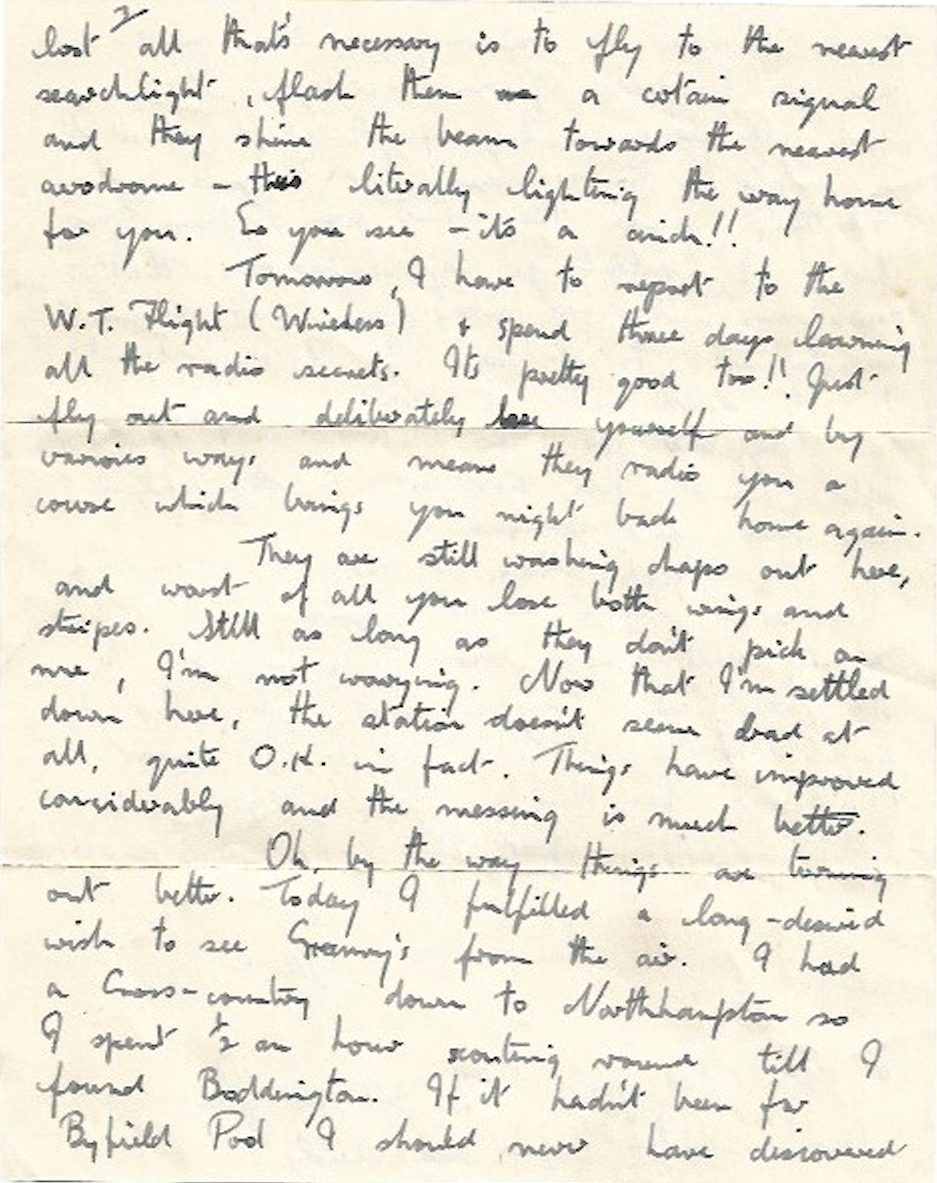 2
lost all that's necessary is to fly to the nearest
searchlight, flash them a cetain signal
and they shine the beam towards the nearest
aerodrome – this literally lighting the way home
for you. So you see – it's a cinch!!
Tomorrow, I have to report to the
W.T. Flight (Wireless) & spend three days learning
all the radio secrets. Its pretty good too!! Just
fly out and deliberately lose yourself and by
various ways and means they radio you a
course which brings you right back home again.
They are still washing chaps out here,
and worst of all you lose both wings and
stripes. Still as long as they don't pick on
me, I'm not worrying. Now that I'm settled
down here, the station doesn't seem bad at
all, quite O.K. in fact. Things have improved
considerably and the messing is much better.
Oh, by the way things are turning
out better. Today I fulfilled a long-desired
wish to see Granny's from the air. I had
a Cross-country down to Northhampton so
I spent ½ an hour scouting round till I
found Boddington. If it hadn't been for
Byfield Pool I should never have discovered